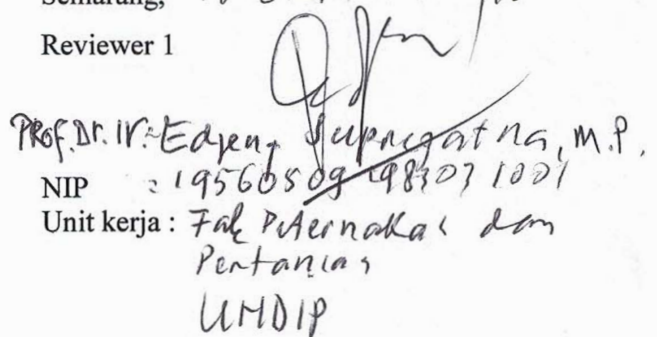 Semarang,
Reviewer 1
Prof. Dr. Ir. Edjeng Suprijatna, M.P.
NIP : 19560509 198303 1001
Unit kerja : Fak Peternakan dan
Pertanian
UNDIP